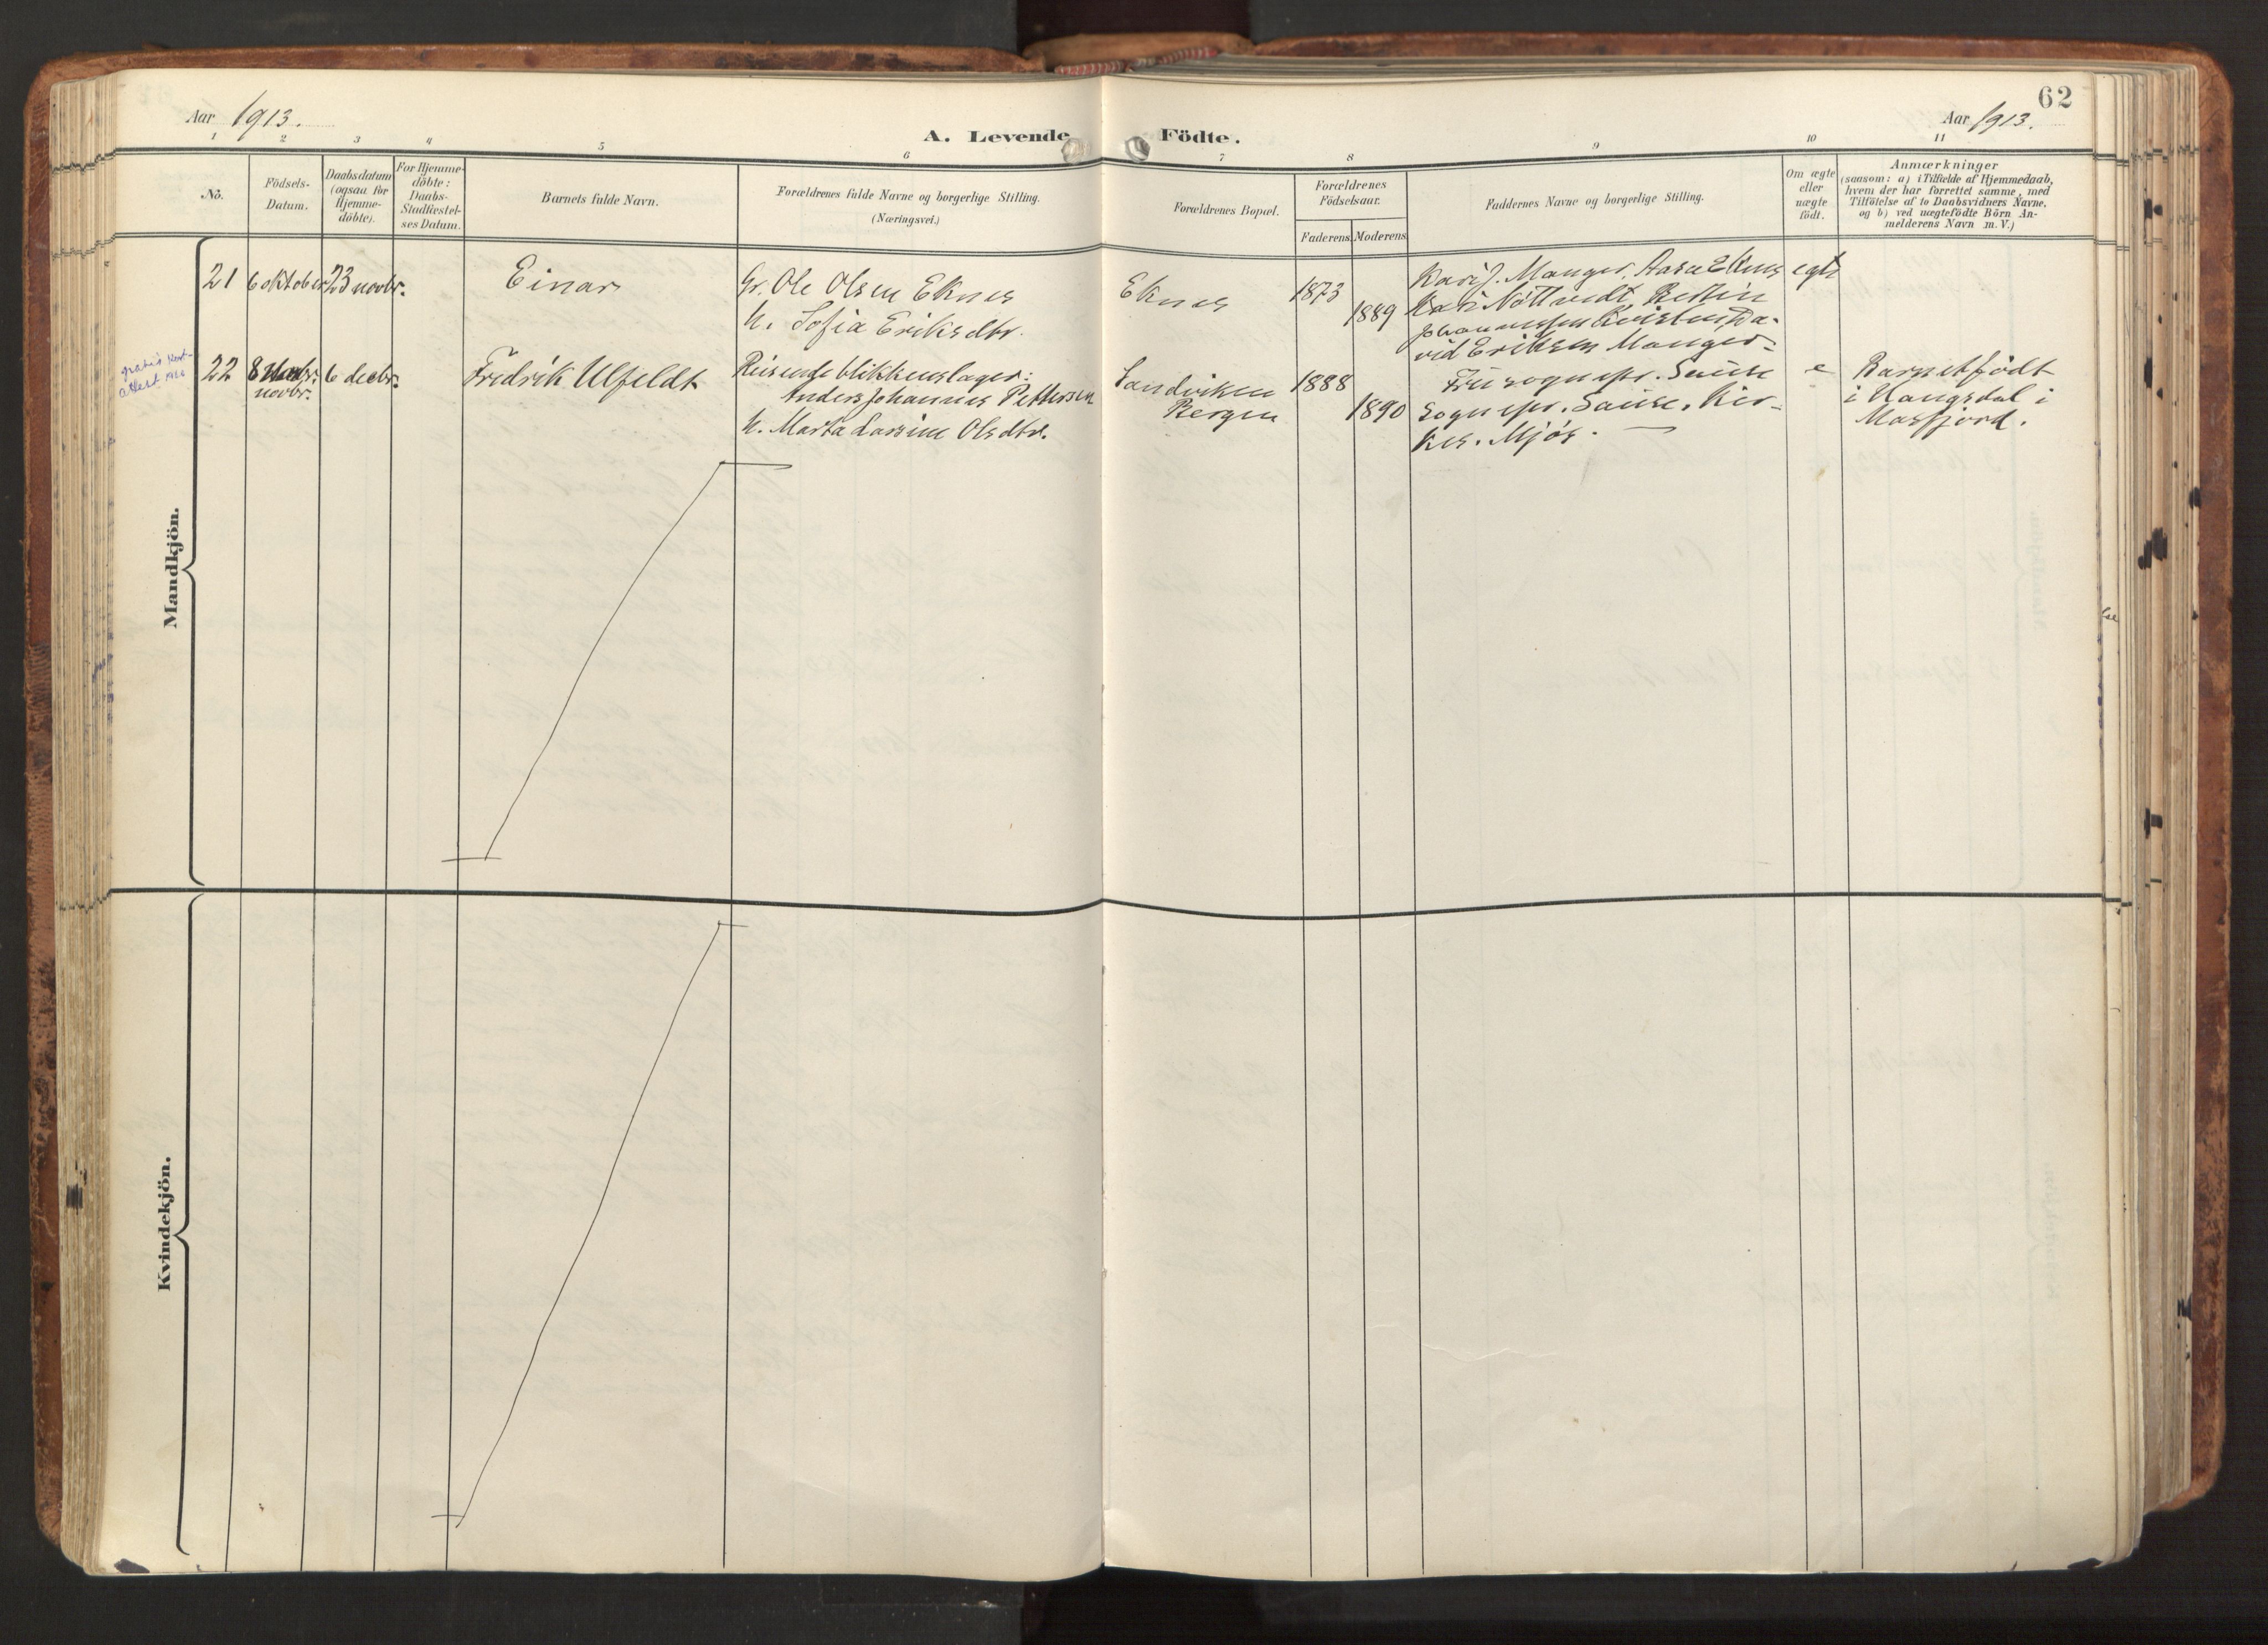 62
Aar 1913.
A. Levende Födte.
Aar 1913.
1 2 3 4 5 6 7 8 9 10 11
No.
Födsels-
Datum.
Daabsdatum
(ogsaa for
Hjemme-
döbte).
For Hjemme-
döbte:
Daabs-
Stadfæstel-
ses Datum.
Barnets fulde Navn.
Forældrenes fulde Navne og borgerlige Stilling.
(Næringsvei.)
Forældrenes Bopæl.
Forældrenes
Födselsaar.
Faderens. Moderens.
Faddernes Navne og borgerlige Stilling.
Om ægte
eller
uægte
födt.
Anmærkninger
(saasom: a) i Tilfælde af Hjemmedaab,
hvem der har forrettet samme, med
Tilföielse af to Daabsvidners Navne,
og b) ved uægtefödte Börn An-
melderens Navn m. V.)
Mandkjön.
21
6 oktober
23 novbr.
Einar
Gr. Ole Olsen Eknes
H. Sofia Eriksdtr.
Eknes
1873
1889
Kari J. Manger, Aasa Eknes
Nöttvedt, Bertin
Johannessen Kvisten, Da-
vid Eriksen Manger.
egte
22
8
novbr.
6 decbr.
Fredrik Ulfeldt
Reisende blikkenslager:
Anders Johannes Pettersen
H. Marta Larsine Olsdtr.
Sandviken
Bergen
1888
1890
Fru sognepr. Sause
Sognepr. Sause, Kir-
kes. Mjös.
e
Barnet födt
i Haugsdal i
Masfjord.
Kvindekjön.